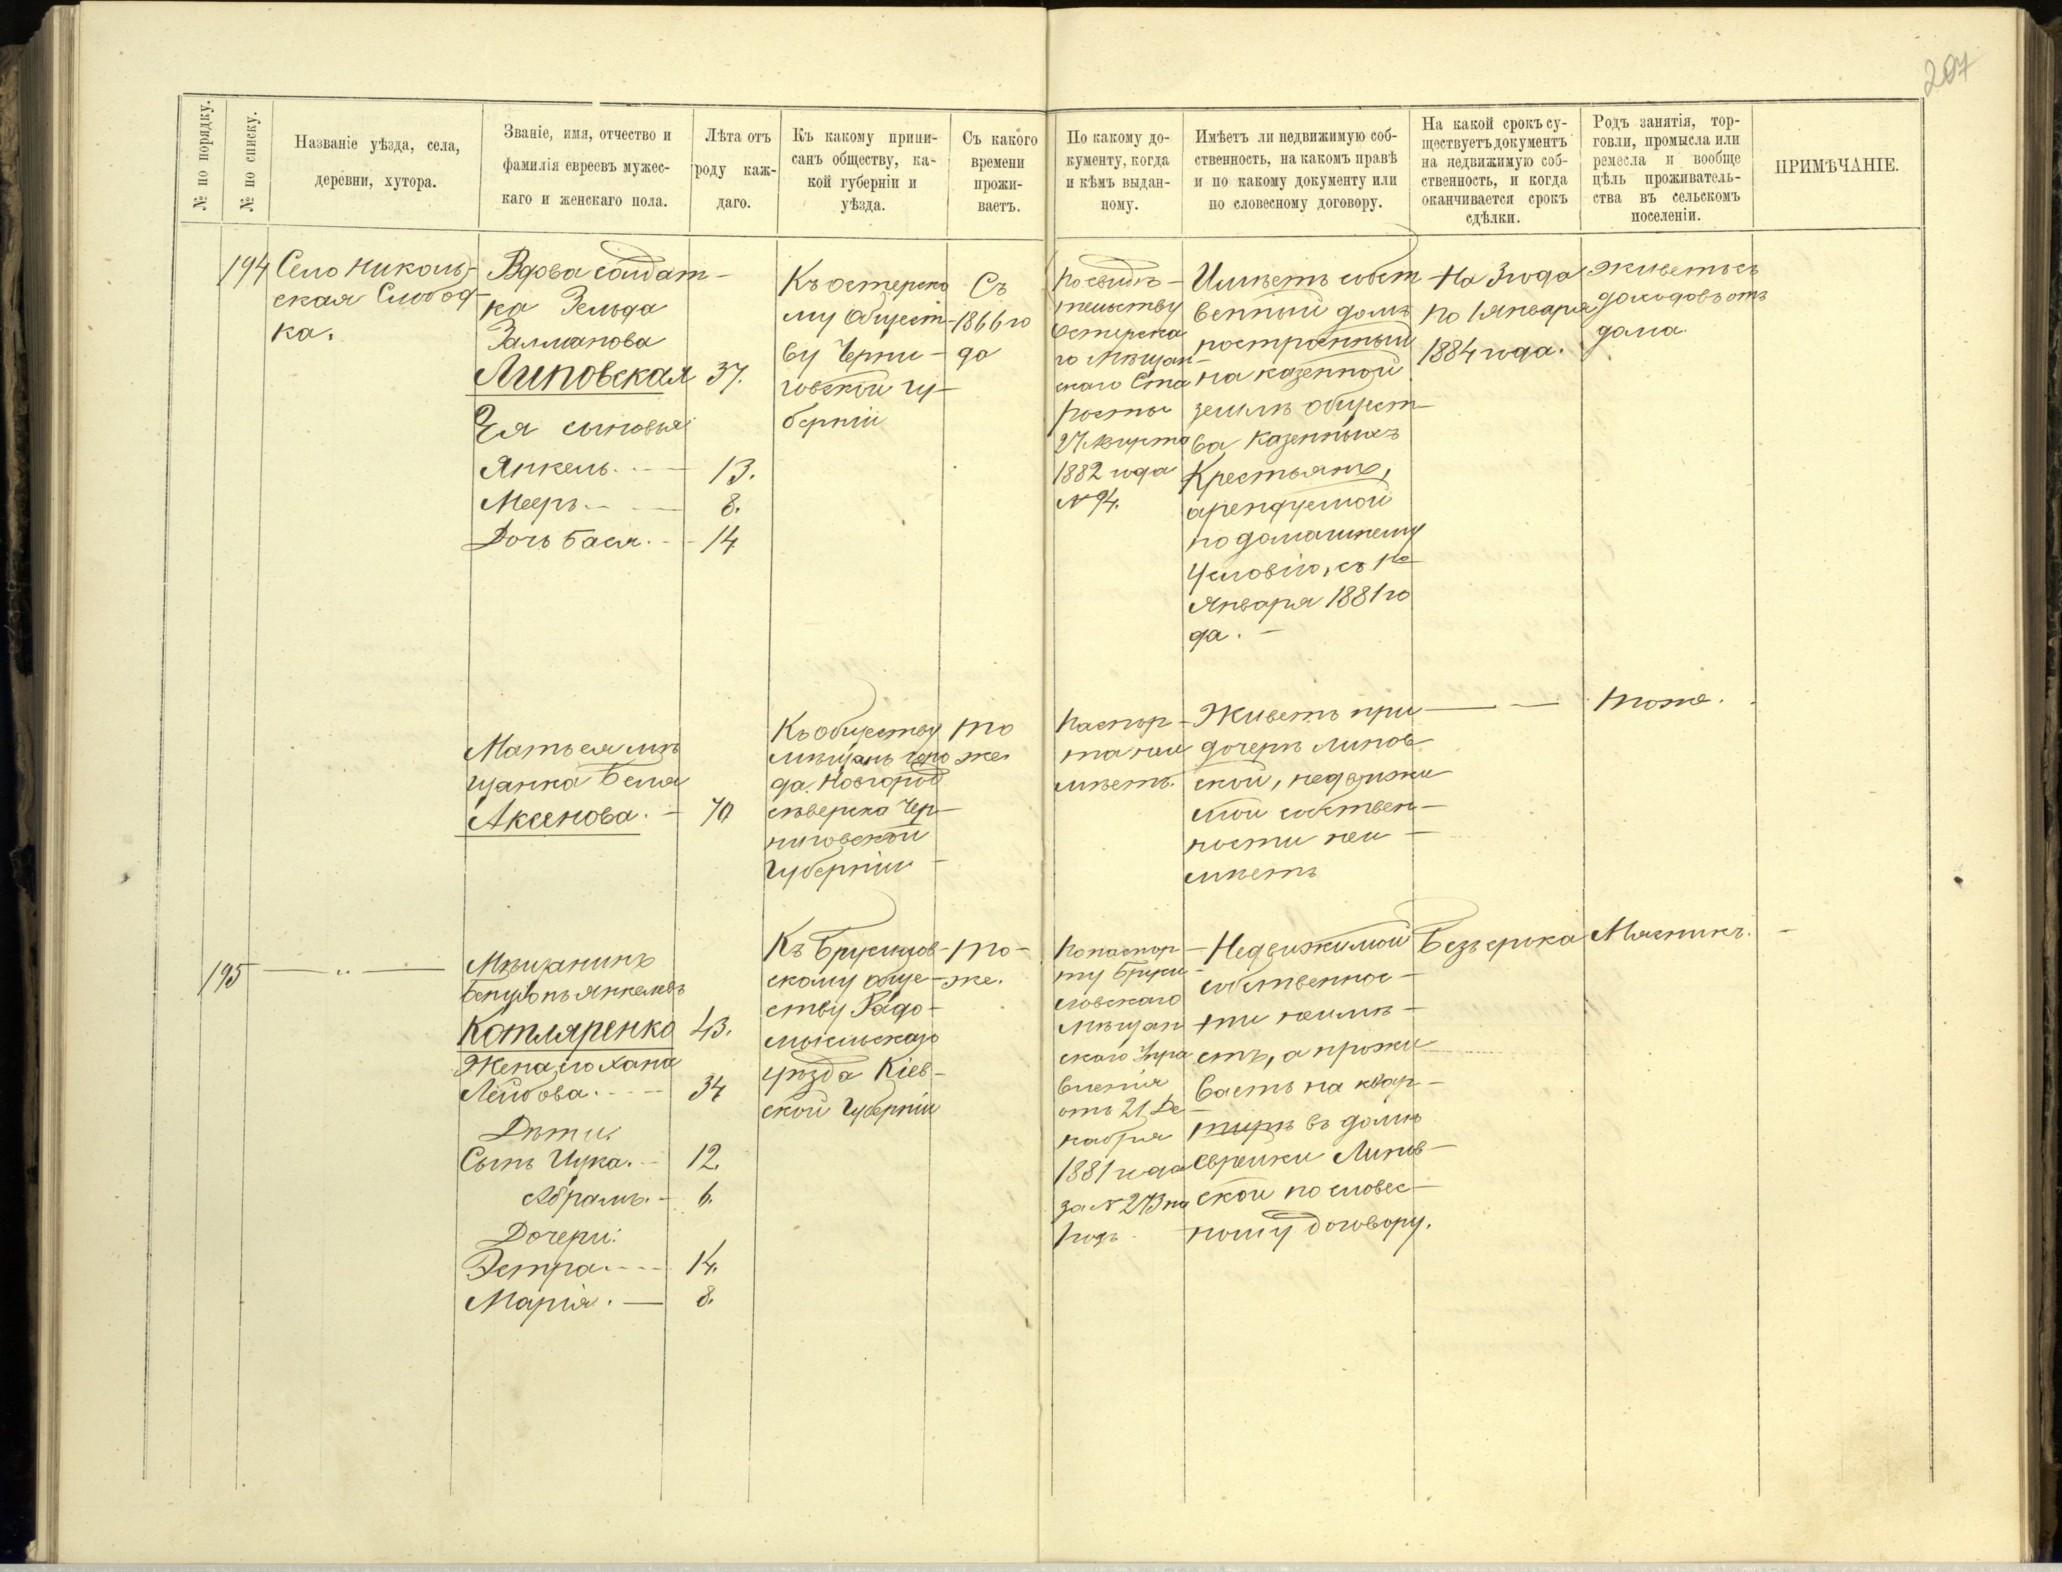 207
№ по порядку.
№ по списку.
Названіе уѣзда, села,
деревни, хутора.
Званіе, имя, отчество и
фамилія евреевъ мужес-
каго и женскаго пола.
Лѣта отъ
роду каж-
даго.
Къ какому припи-
санъ обществу, ка-
кой губерніи и
уѣзда.
Съ какого
времени
прожи-
ваетъ.
По какому до-
кументу, когда
и кѣмъ выдан-
ному.
Имѣетъ ли недвижимую соб-
ственность, на какомъ правѣ
и по какому документу или
по словесному договору.
На какой срокъ су-
ществуетъ документъ
на недвижимую соб-
ственность, и когда
оканчивается срокъ
сдѣлки.
Родъ занятія, тор-
говли, промысла или
ремесла и вообще
цѣль проживатель-
ства въ сельскомъ
поселеніи.
ПРИМѢЧАНІЕ.
194
Село Николь-
ская Слобод-
ка.
Вдова солдат-
ка Зельда
Залманова
Липовская 37.
Ея сыновья:
Янкель. 13.
Мееръ 8.
Дочь Бася. 14
Къ остерско
му Общест-
ву Черни-
говской гу-
берніи
Съ
1866 го
да
По свидѣ-
тельству
Остерска
го Мѣщан-
скаго Ста
росты
27 Марта
1882 года
№ 94.
Имѣетъ собст
венный домъ
построенный
на казенной
землѣ общест-
ва казенныхъ
Крестьянъ,
арендуемой
по домашнему
Условію, съ 1го
Января 1881 го
да. -
На 3 года
по 1 Января
1884 года.
Живетъ съ
доходовъ отъ
дома.
Мать ея мѣ
щанка Беля
Аксенова. - 70
Къ обществу
мѣщанъ горо
да Новгород
сѣверска Чер-
ниговской
Губерніи
То
же
Паспор-
та не и
мѣетъ.
Живетъ при
дочери Липов
ской, недвижи
мой собствен-
ности не и-
мѣетъ
Тоже.
195
Мѣщанинъ
Бенціонъ Янкелевъ
Котляренко 43.
Жена его Хана
Лейбова. 34
Дѣти:
Сынъ Ицка. 12.
Абрамъ. 6.
Дочери:
Эстра 14.
Марія. 8.
Къ Брусилов-
скому обще-
ству Радо-
мысльскаго
уѣзда Кіев-
ской Губерніи
То-
же.
По паспор-
ту Бруси-
ловскаго
Мѣщан
скаго Упра
вленія
отъ 21 Де-
кабря
1881 года
за № 273 на
1 годъ
Недвижимой
собственнос-
ти не имѣ-
етъ, а прожи
ваетъ на квар-
тирѣ въ домѣ
еврейки Липов-
ской по словес-
ному договору.
Безъ срока
Мясникъ.